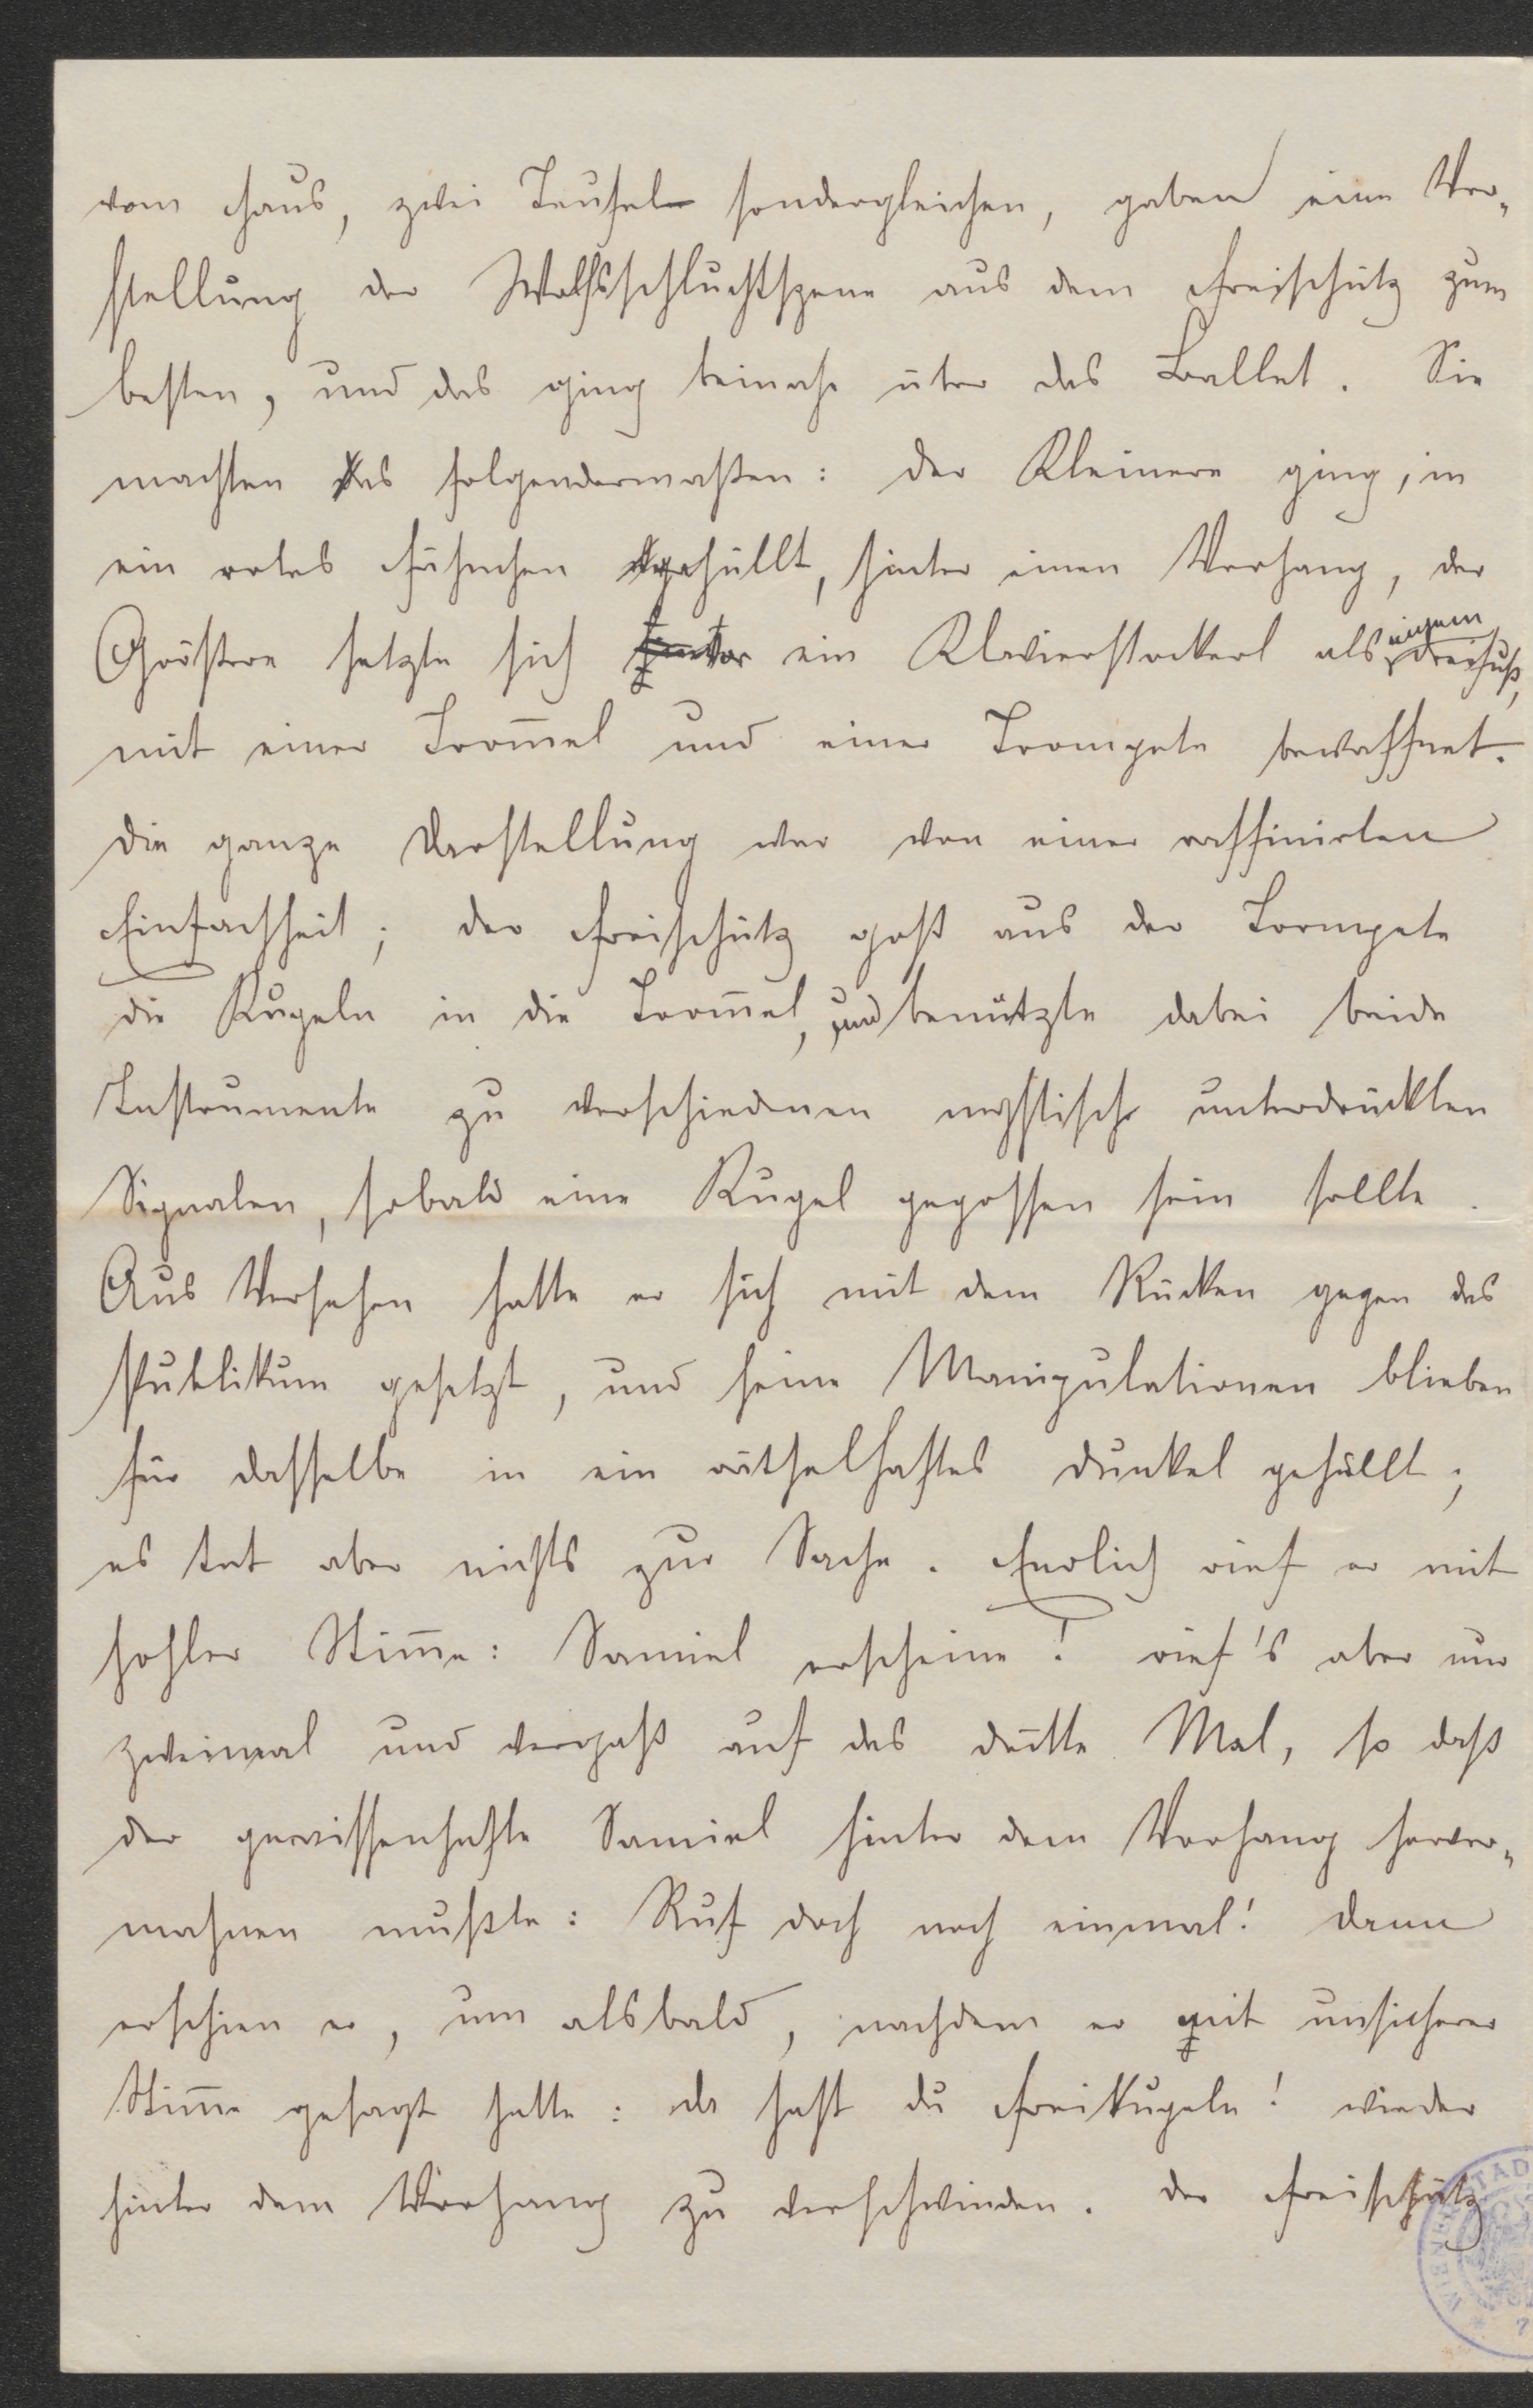 vom Haus, zwei Teufel sondergleichen, gaben eine Vor-
stellung der Wolfsschluchtszene aus dem Freischütz zum
besten, und das ging beinahe über das Ballet. Sie
machten es folgendermaßen: der Kleinere ging, in
ein rotes Fähnchen gehüllt, hinter einen Vorhang, der
Größere setzte sich vor ein Klavierstockerl als einem Dreifuß,
mit einer Trom̄el und einer Trompete bewaffnet.
Die ganze Darstellung war von einer raffinirten
Einfachheit; der Freischütz goß aus der Trompete
die Kugeln in die Trom̄el, und benützte dabei beide
Instrumente zu verschiedenen mystisch unterdrückten
Signalen, sobald eine Kugel gegossen sein sollte.
Aus Versehen hatte er sich mit dem Rücken gegen das
Publikum gesetzt, und seine Manipulationen blieben
für dasselbe in ein räthselhaftes Dunkel gehüllt;
es tat aber nichts zur Sache. Endlich rief er mit
hohler Stim̄e: Samiel erscheine! rief's aber nur
zweimal und vergaß auf das dritte Mal, so daß
der gewissenhafte Samiel hinter dem Vorhang hervor-
mahnen mußte: Ruf doch noch einmal! Dann
erschien er, um alsbald, nachdem er mit unsicherer
Stim̄e gesagt hatte: da hast du Freikugeln! wieder
hinter dem Vorhang zu verschwinden. Der Freischütz